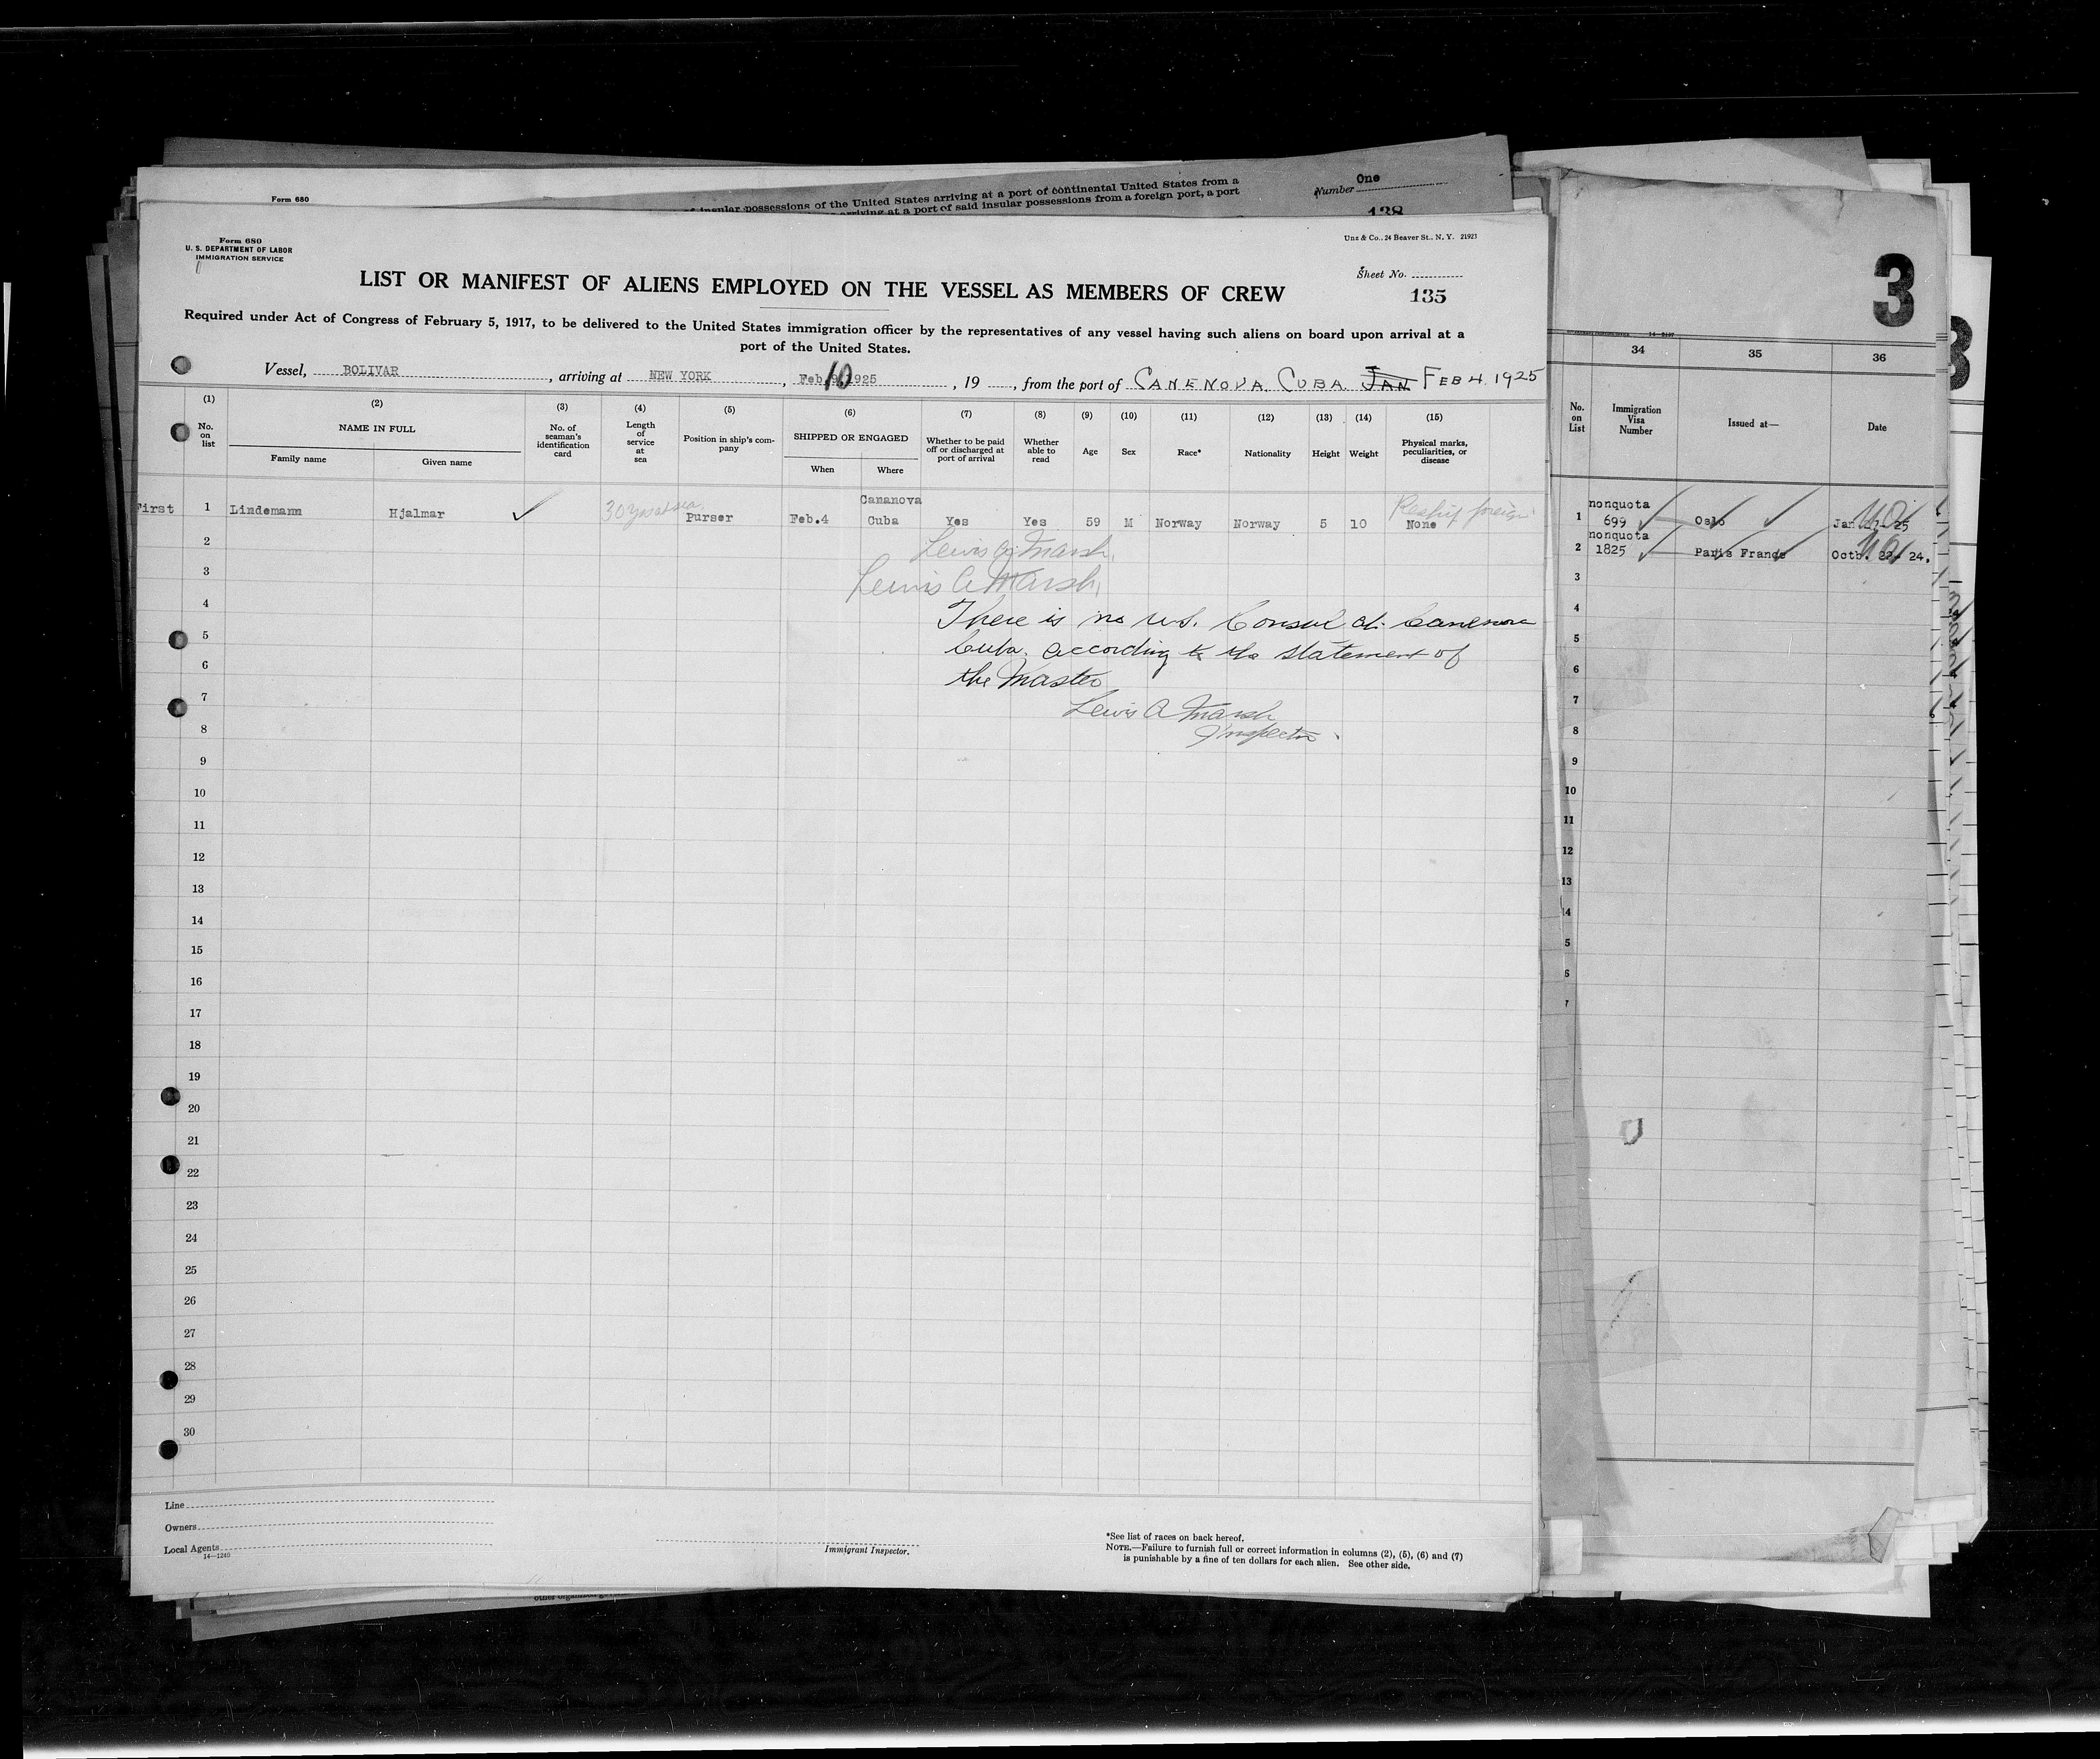 Form 680
insular possessions of the United States arriving at a port of continental United States from a
arriving at a port of said insular possessions from a foreign port, a port
One
Number
138
Form 680
U. S. DEPARTMENT OF LABOR
IMMIGRATION SERVICE
Unz & Co., 24 Beaver St., N. Y. 21923
LIST OR MANIFEST OF ALIENS EMPLOYED ON THE VESSEL AS MEMBERS OF CREW
Sheet No.
135
Required under Act of Congress of February 5, 1917, to be delivered to the United States immigration officer by the representatives of any vessel having such aliens on board upon arrival at a
port of the United States.
Vessel, BOLIVAR, arriving at NEW YORK, Feb. 10 1925, 19, from the port of CANENOVA, CUBA JAN FEB 4 1925
(1) (2) (3) (4) (5) (6) (7) (8) (9) (10) (11) (12) (13) (14) (15)
No. on list
NAME IN FULL
Family name
Given name
No. of seaman's identification card
Length of service at sea
Position in ship's company
SHIPPED OR ENGAGED
When
Where
Whether to be paid off or discharged at port of arrival
Whether able to read
Age
Sex
Race*
Nationality
Height
Weight
Physical marks, peculiarities, or disease
Cananova
First 1 Lindemann Hjalmar 30 yrs at sea Purser Feb.4 Cuba Yes Yes 59 M Norway Norway 5 10 Reship foreign None
2 Lewis A. Marsh
3 Lewis A Marsh
4 There is no U.S. Consul at Canenova
5 Cuba. according to the statement of
6 the Master
7 Lewis A Marsh
8 Inspector
9
10
11
12
13
14
15
16
17
18
19
20
21
22
23
24
25
26
27
28
29
30
Line
Owners
Local Agents
14—1240
Immigrant Inspector.
*See list of races on back hereof.
NOTE.—Failure to furnish full or correct information in columns (2), (5), (6) and (7)
is punishable by a fine of ten dollars for each alien. See other side.
3
34 35 36
No. on List
Immigration Visa Number
Issued at—
Date
nonquota
1 699 Oslo Jan. 25
nonquota
2 1825 Paris France Octb. 22 24.
3
4
5
6
7
8
9
10
11
12
13
14
5
6
7